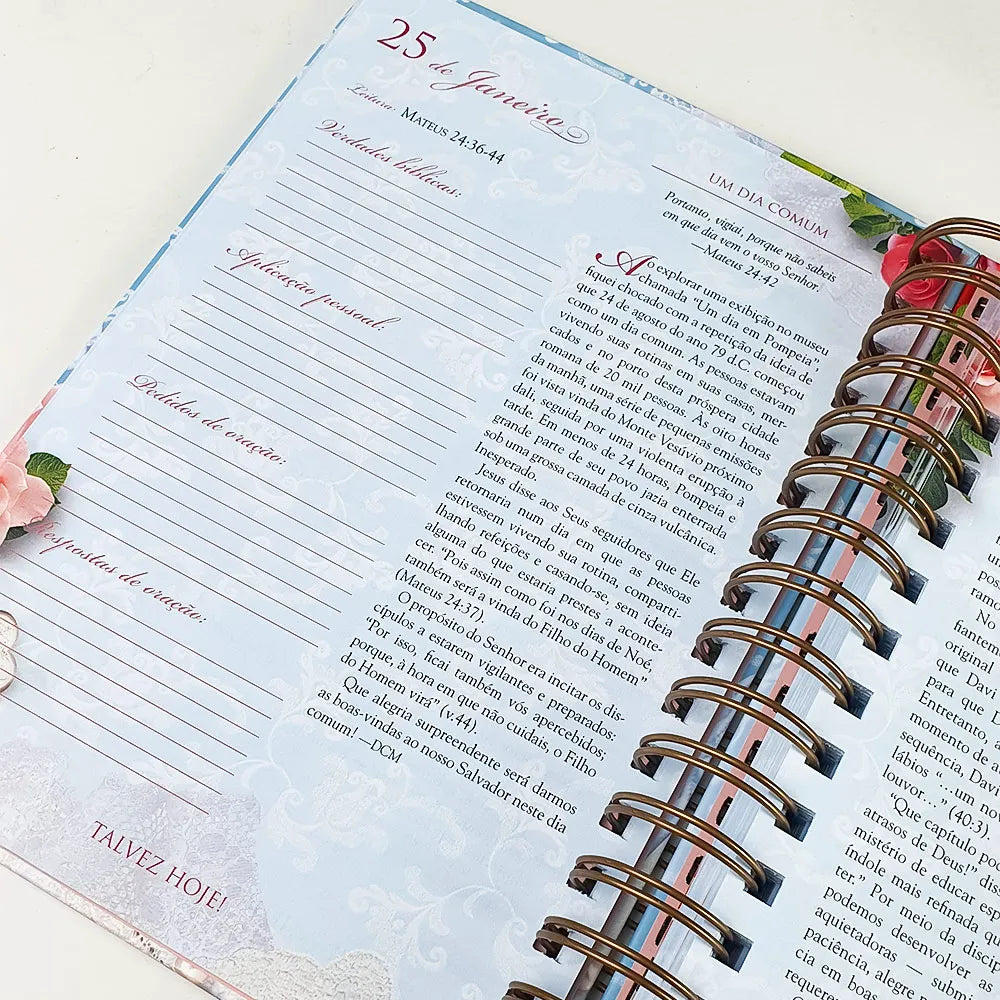 25 de Janeiro
Leitura: MATEUS 24:36-44
Verdades bíblicas:
Aplicação pessoal:
Pedidos de oração:
espostas de oração:
TALVEZ HOJE!
UM DIA COMUM
Portanto, vigiai, porque não sabeis
em que dia vem o vosso Senhor.
—Mateus 24:42
Ao explorar uma exibição no museu
chamada “Um dia em Pompeia”,
fiquei chocado com a repetição da ideia de
que 24 de agosto do ano 79 d.C. começou
como um dia comum. As pessoas estavam
vivendo suas rotinas em suas casas, mer-
cados e no porto desta próspera cidade
romana de 20 mil pessoas. Às oito horas
da manhã, uma série de pequenas emissões
foi vista vinda do Monte Vesúvio próximo
dali, seguida por uma violenta erupção à
tarde. Em menos de 24 horas, Pompeia e
grande parte de seu povo jazia enterrada
sob uma grossa camada de cinza vulcânica.
Inesperado.
Jesus disse aos Seus seguidores que Ele
retornaria num dia em que as pessoas
estivessem vivendo sua rotina, comparti-
lhando refeições e casando-se, sem ideia
alguma do que estaria prestes a aconte-
cer. “Pois assim como foi nos dias de Noé,
também será a vinda do Filho do Homem”
(Mateus 24:37).
O propósito do Senhor era incitar os dis-
cípulos a estarem vigilantes e preparados:
“Por isso, ficai também vós apercebidos;
porque, à hora em que não cuidais, o Filho
do Homem virá” (v.44).
Que alegria surpreendente será darmos
as boas-vindas ao nosso Salvador neste dia
comum! —DCM
pos
ram
No
fiantem
original
que Davi
para que D
Entretanto, a
momento de a
sequência, Davi
lábios “...um no
louvor...” (40:3).
“Que capítulo pod
atrasos de Deus!” diss
mistério de educar esp
índole mais refinada qu
ter.” Por meio da discip
podemos desenvolver a
aquietadoras — submis
paciência, alegre a
cia em boas
requere